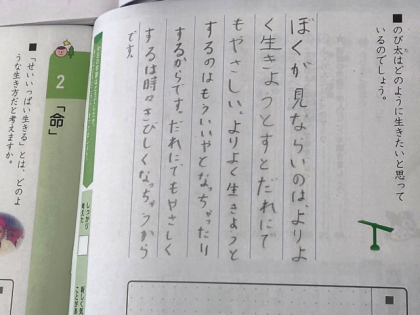 ■のび太はどのように生きたいと思って
いるのでしょう。
ぼくが見ならいのは、よりよ
く生きようとすとだれにで
もやさしい、よりよく生きようと
するのはもういいやとなっちゃったり
するからです。だれにでもやさしく
するは時々きびしくなっちゃうから
です。
2
「命」
■「せいいっぱい生きる」とは、どのよ
うな生き方だと考えますか。